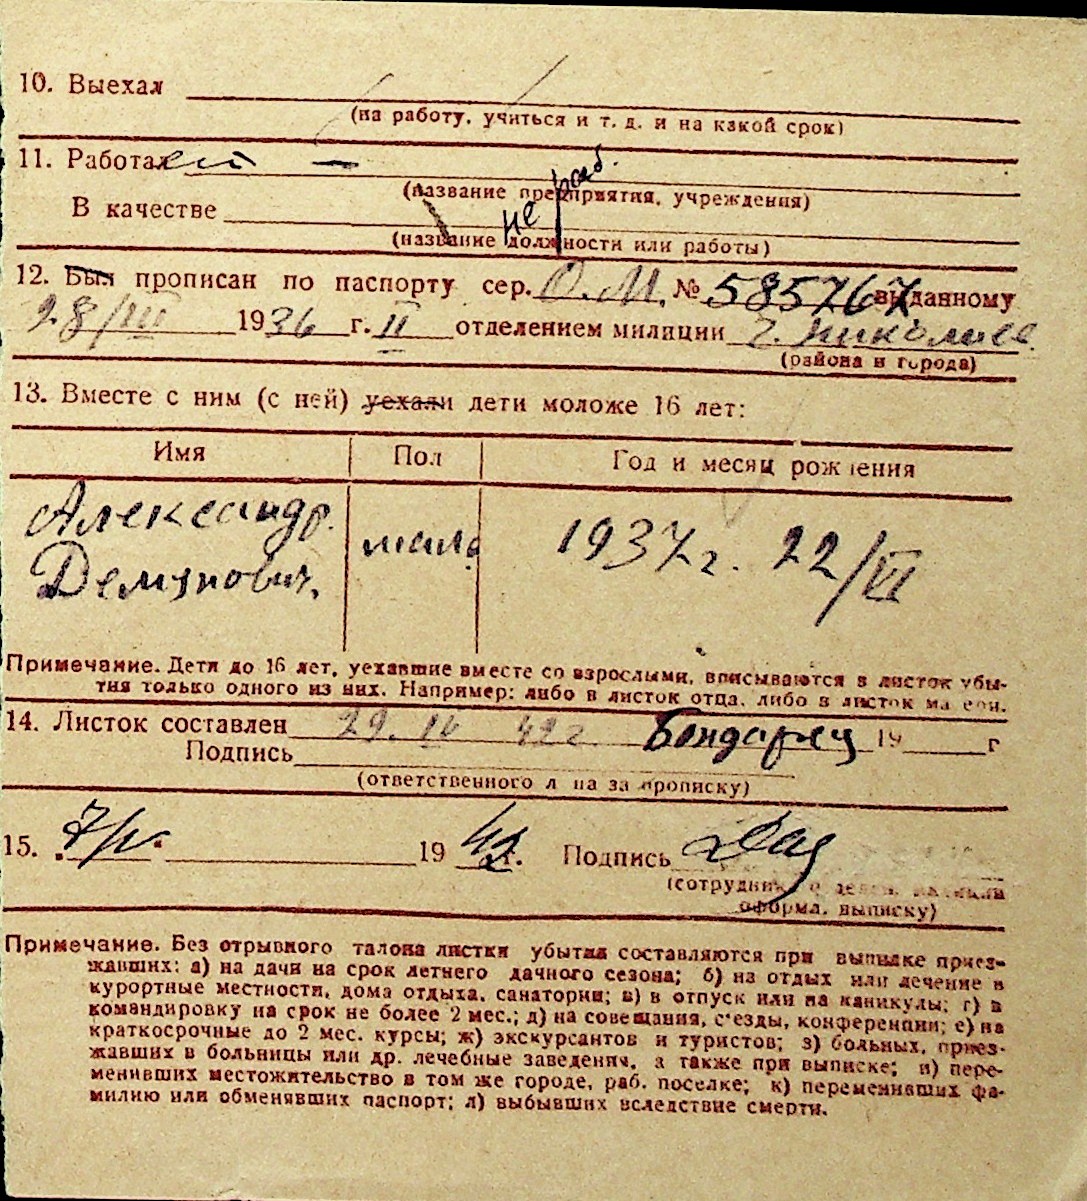 10. Выехал
(на работу, учиться и т. д. и на какой срок)
11. Работает —
(название предприятия, учреждения)
не раб.
В качестве
(название должности или работы)
12. Был прописан по паспорту сер. О.М. № 585767 выданному
28/III 1936 г. II отделением милиции г. Николаев
(района и города)
13. Вместе с ним (с ней) уехали дети моложе 16 лет:
Имя Пол Год и месяц рождения
Александр
Демянович. 1937 г. 22/VI
Примечание. Дети до 16 лет, уехавшие вместе со взрослыми, вписываются в листок убы-
тия только одного из них. Например: либо в листок отца, либо в листок матери.
14. Листок составлен 29. IV 42 г. Бондарец 19 г
Подпись
(ответственного лица за прописку)
15. 7/V 19 42 г. Подпись
(сотрудник отделен. милиции
оформл. выписку)
Примечание. Без отрывного талона листки убытия составляются при выписке приез-
жавших: а) на дачи на срок летнего дачного сезона; б) на отдых или лечение в
курортные местности, дома отдыха, санатории; в) в отпуск или на каникулы; г) в
командировку на срок не более 2 мес.; д) на совещания, с'езды, конференции; е) на
краткосрочные до 2 мес. курсы; ж) экскурсантов и туристов; з) больных, приез-
жавших в больницы или др. лечебные заведения, а также при выписке; и) пере-
менивших местожительство в том же городе, раб. поселке; к) переменивших фа-
милию или обменявших паспорт; л) выбывших вследствие смерти.